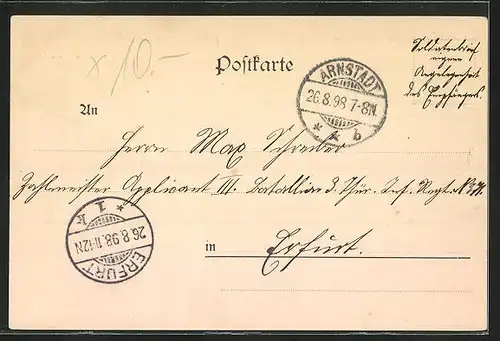 x 10.-
Postkarte
Soldatenbrief
eigene
Angelegenheit
des Empfängers.
ARNSTADT
26.8.98.7-8N.
* * b
An
Herrn Max Schreiber
Zahlmeister Applicant III. Bataillon 3. Thür. Inf. Regt. No 71
in Erfurt.
ERFURT
26.8.98.11-12N
* 1 k